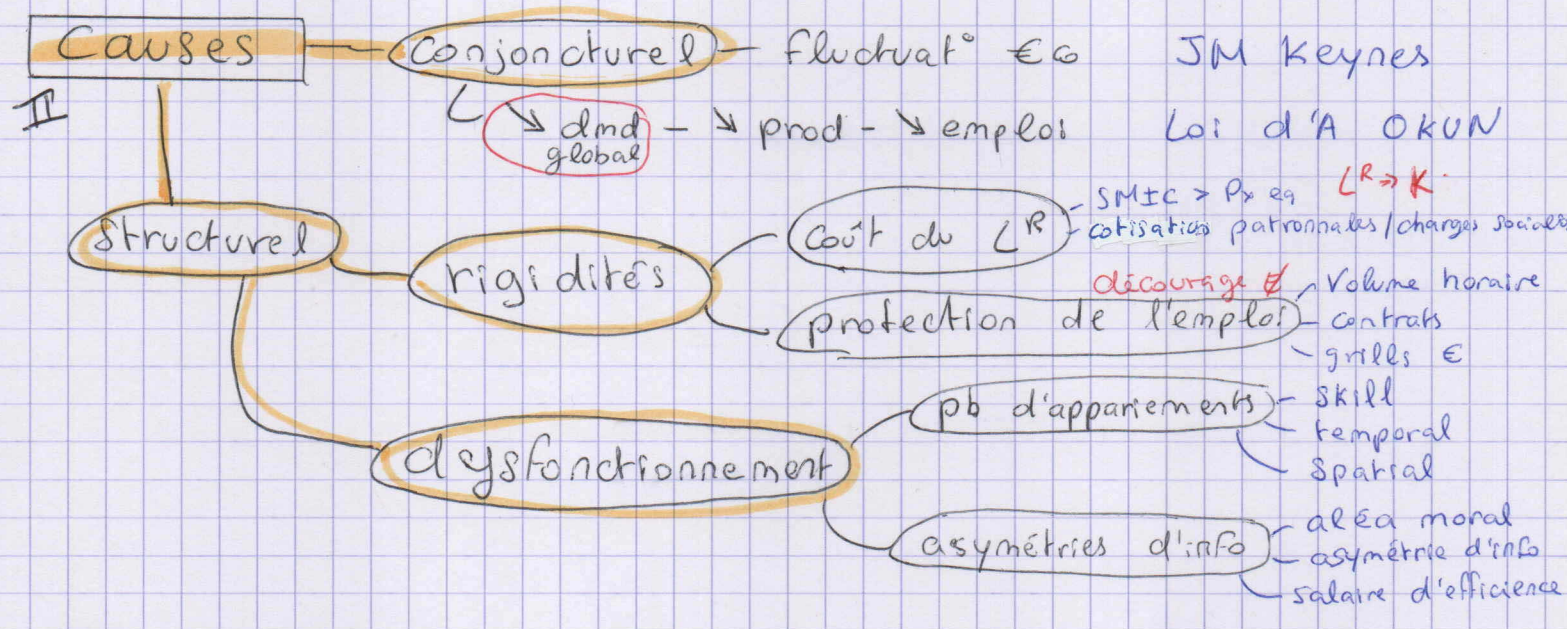 Causes — conjoncturel — fluctuat° €co JM Keynes
II
↘ dmd global – ↘ prod – ↘ emploi Loi d'A OKUN
structurel
rigidités
coût du L^R
SMIC > Px eq L^R → K
cotisation patronnales/charges sociales
décourage
protection de l'emploi
Volume horaire
contrats
grills €
dysfonctionnement
pb d'appariements
skill
temporal
spatial
asymétries d'info
aléa moral
asymétrie d'info
salaire d'efficience